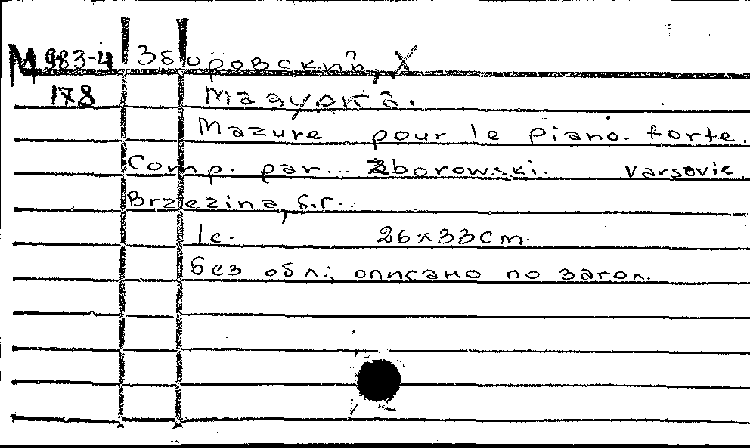 М 983-4 Зборовский, X
178 Мазурка.
Mazure pour le piano-forte.
Comp. par... Zborowski. Varsovie
Brzezina, s.r.
1c. 26x33cm.
без обл.; описано по загол.